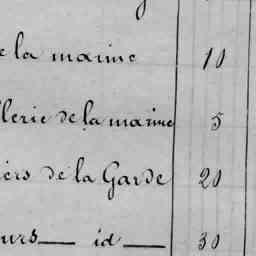 la marine 10
llerie de la marine 5
iers de la Garde 20
urs — id — 30